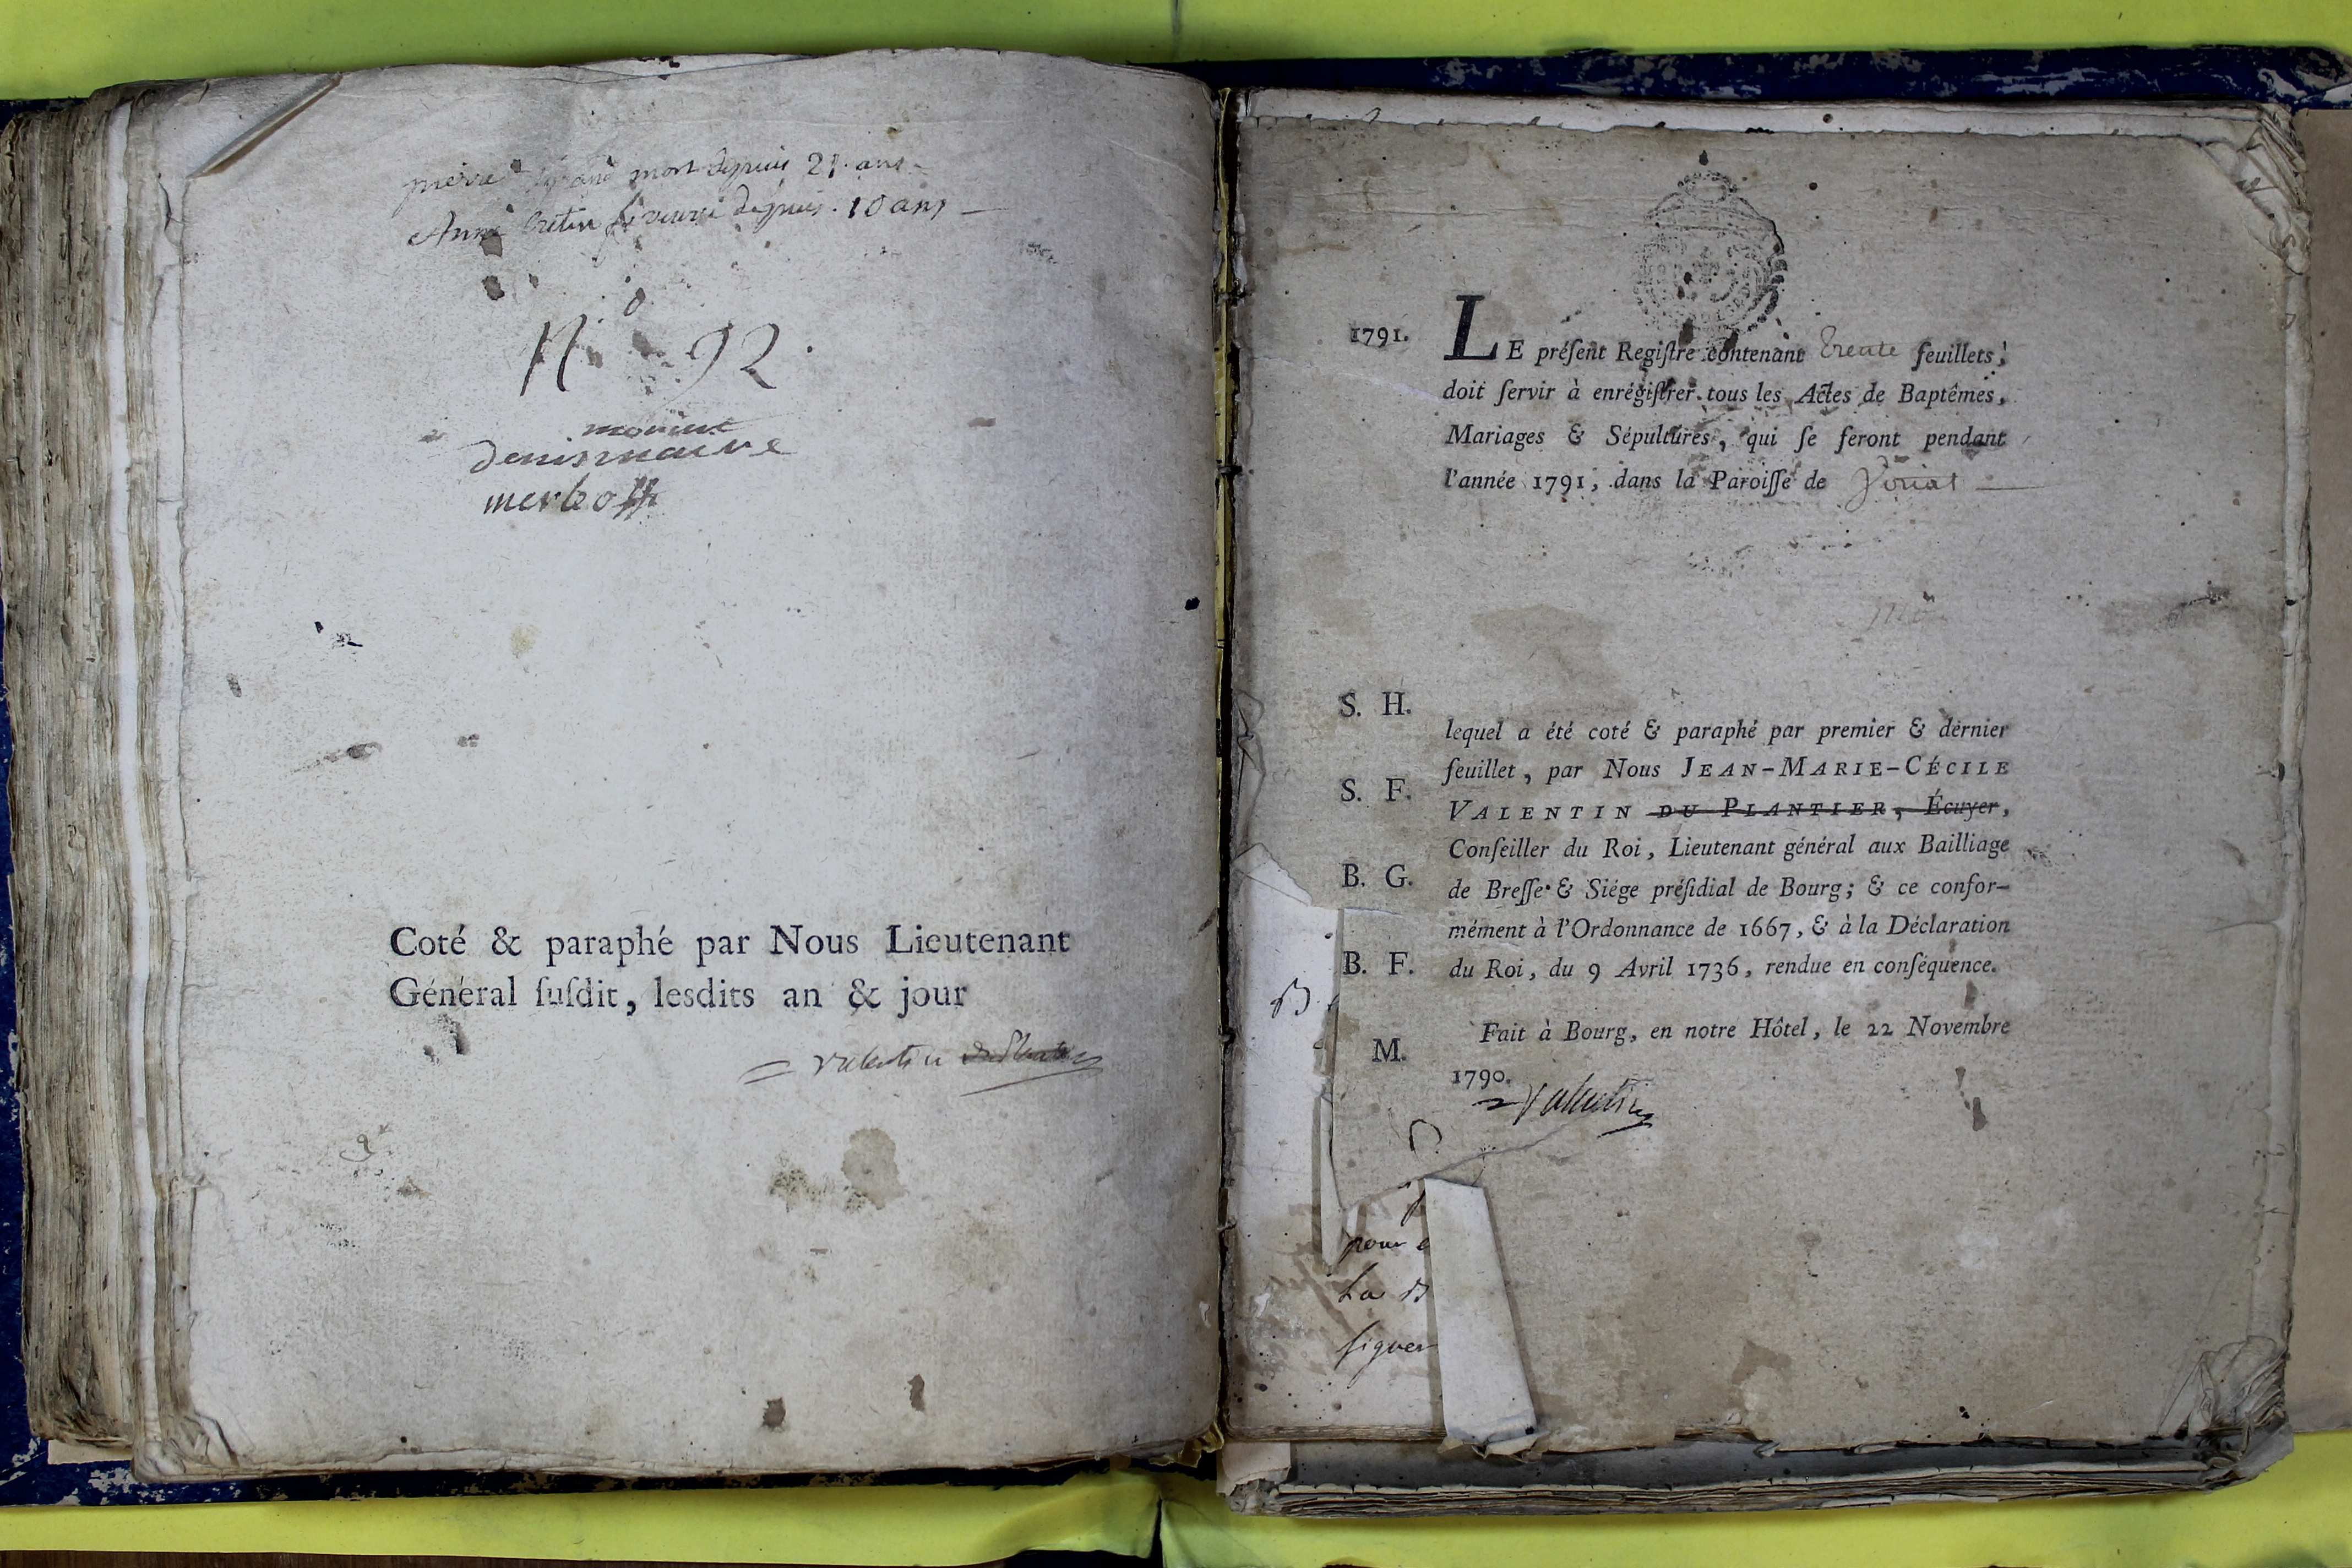 pierre mort depuis 21 ans
Anne Cretin sa veuve depuis 10 ans
N.° 92
denis maire
Coté & paraphé par Nous Lieutenant
Général ſuſdit, lesdits an & jour
Valentin
1791.
LE préſent Regiſtre contenant trente feuillets,
doit ſervir à enrégiſtrer tous les Actes de Baptêmes,
Mariages & Sépultures, qui ſe feront pendant
l'année 1791, dans la Paroiſſe de Viriat
S. H.
lequel a été coté & paraphé par premier & dernier
feuillet, par Nous JEAN-MARIE-CÉCILE
S. F.
VALENTIN DU PLANTIER, Écuyer,
Conſeiller du Roi, Lieutenant général aux Bailliage
B. G.
de Breſſe & Siége préſidial de Bourg; & ce confor-
mément à l'Ordonnance de 1667, & à la Déclaration
B. F.
du Roi, du 9 Avril 1736, rendue en conſéquence.
Fait à Bourg, en notre Hôtel, le 22 Novembre
M.
1790.
Valentin
pour
La
signer